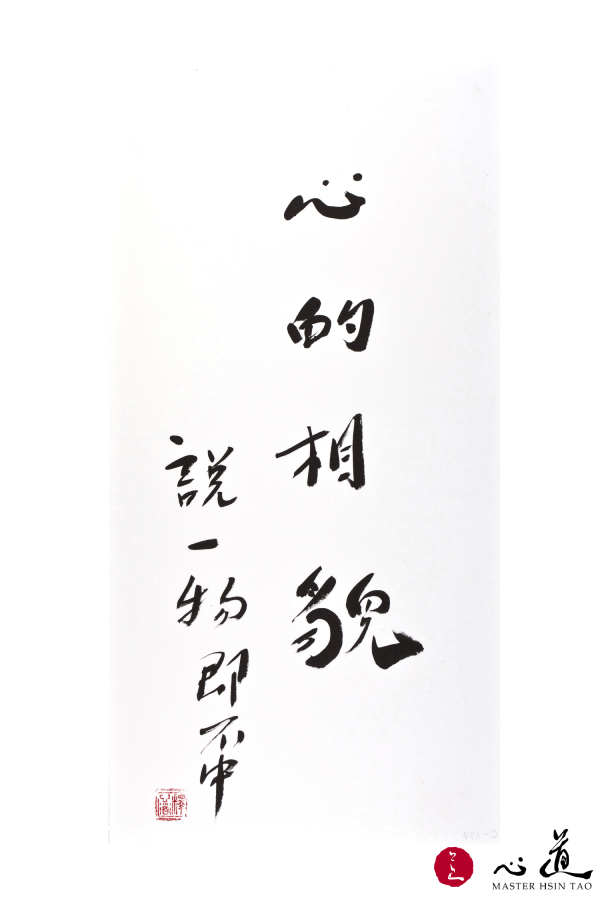 心的相貌
説一物即不中
心道
MASTER HSIN TAO